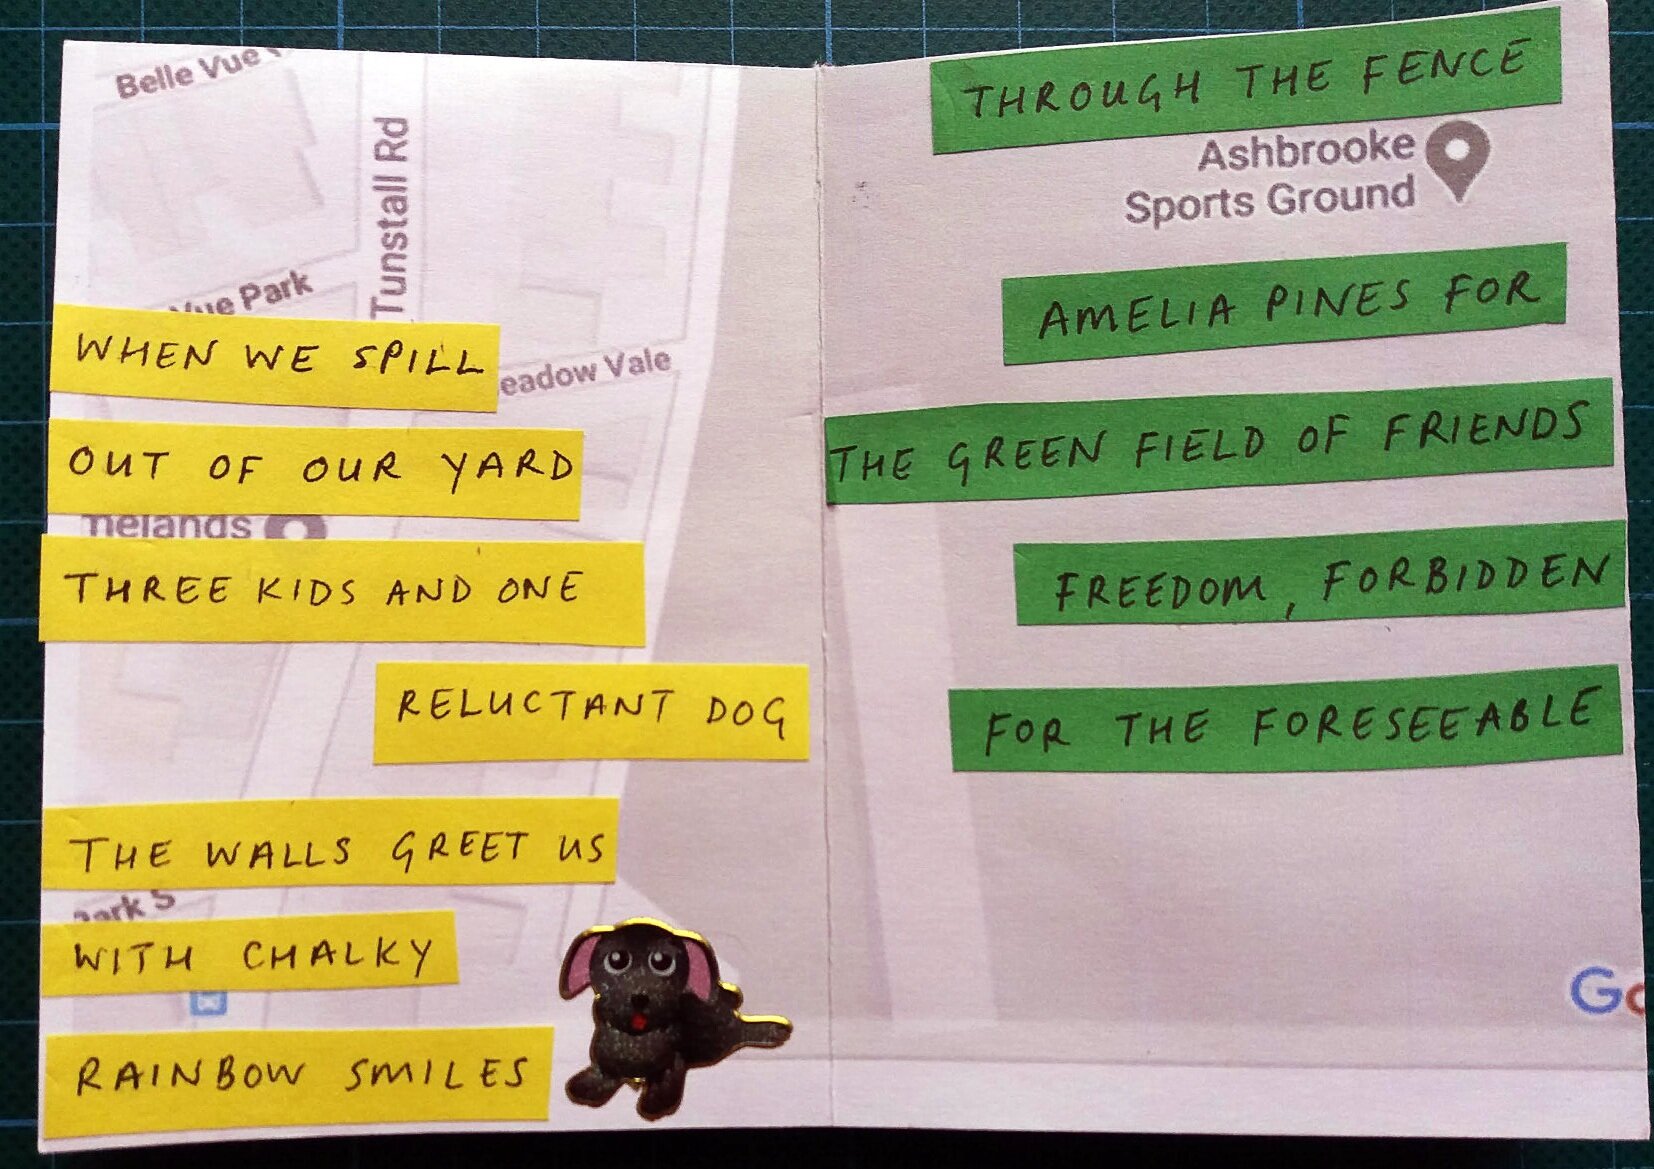 Belle Vue
Tunstall Rd
Vue Park
WHEN WE SPILL
eadow Vale
OUT OF OUR YARD
nelands
THREE KIDS AND ONE
RELUCTANT DOG
THE WALLS GREET US
ark S
WITH CHALKY
RAINBOW SMILES
THROUGH THE FENCE
Ashbrooke
Sports Ground
AMELIA PINES FOR
THE GREEN FIELD OF FRIENDS
FREEDOM, FORBIDDEN
FOR THE FORESEEABLE
Go